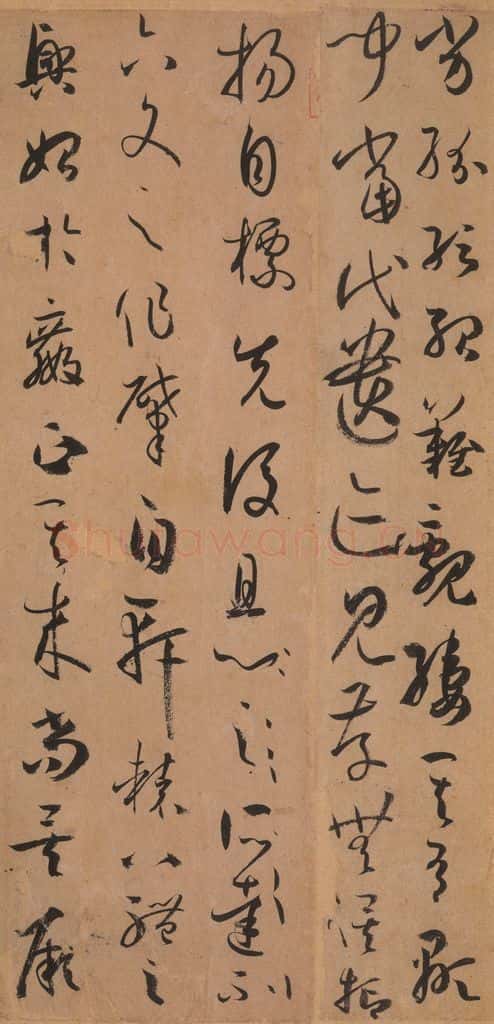 劣紛紜殆難覼縷其有顯
聞當代遺跡見存無俟抑
揚自標先後且心之所達不
六文之作肇自軒轅八體之
興始於嬴正其來尚矣厥
Shufawang.cn